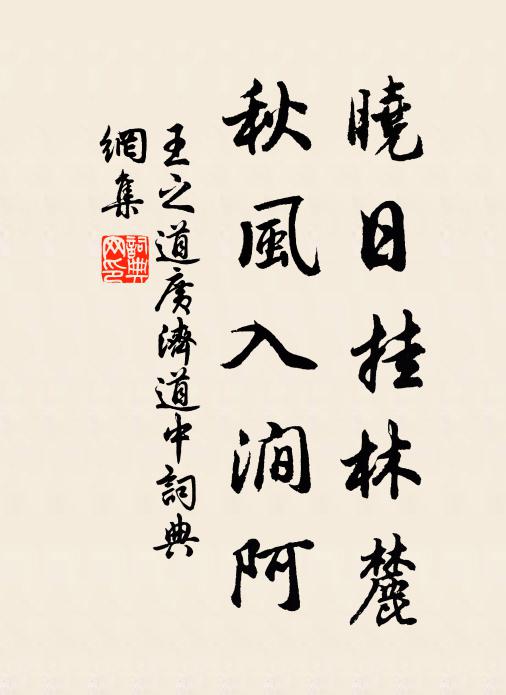 曉日挂林麓
秋風入澗阿
王之道廣濟道中詞典
網集
詞典
网印